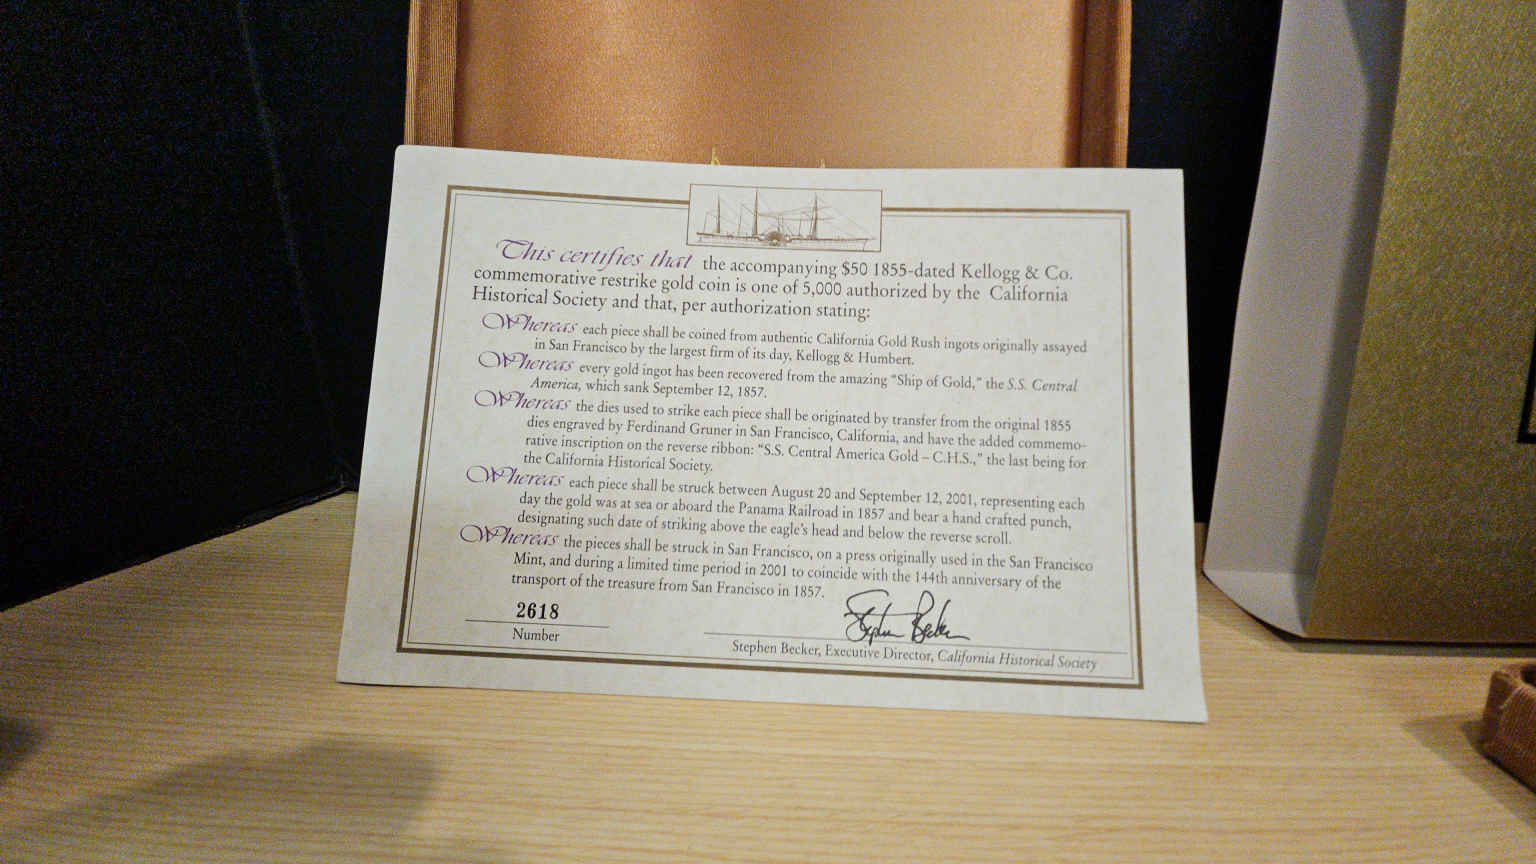 This certifies that the accompanying $50 1855-dated Kellogg & Co.
commemorative restrike gold coin is one of 5,000 authorized by the California
Historical Society and that, per authorization stating:
Whereas each piece shall be coined from authentic California Gold Rush ingots originally assayed
in San Francisco by the largest firm of its day, Kellogg & Humbert.
Whereas every gold ingot has been recovered from the amazing “Ship of Gold,” the S.S. Central
America, which sank September 12, 1857.
Whereas the dies used to strike each piece shall be originated by transfer from the original 1855
dies engraved by Ferdinand Gruner in San Francisco, California, and have the added commemo-
rative inscription on the reverse ribbon: “S.S. Central America Gold – C.H.S.,” the last being for
the California Historical Society.
Whereas each piece shall be struck between August 20 and September 12, 2001, representing each
day the gold was at sea or aboard the Panama Railroad in 1857 and bear a hand crafted punch,
designating such date of striking above the eagle’s head and below the reverse scroll.
Whereas the pieces shall be struck in San Francisco, on a press originally used in the San Francisco
Mint, and during a limited time period in 2001 to coincide with the 144th anniversary of the
transport of the treasure from San Francisco in 1857.
2618
Number
Stephen Becker
Stephen Becker, Executive Director, California Historical Society